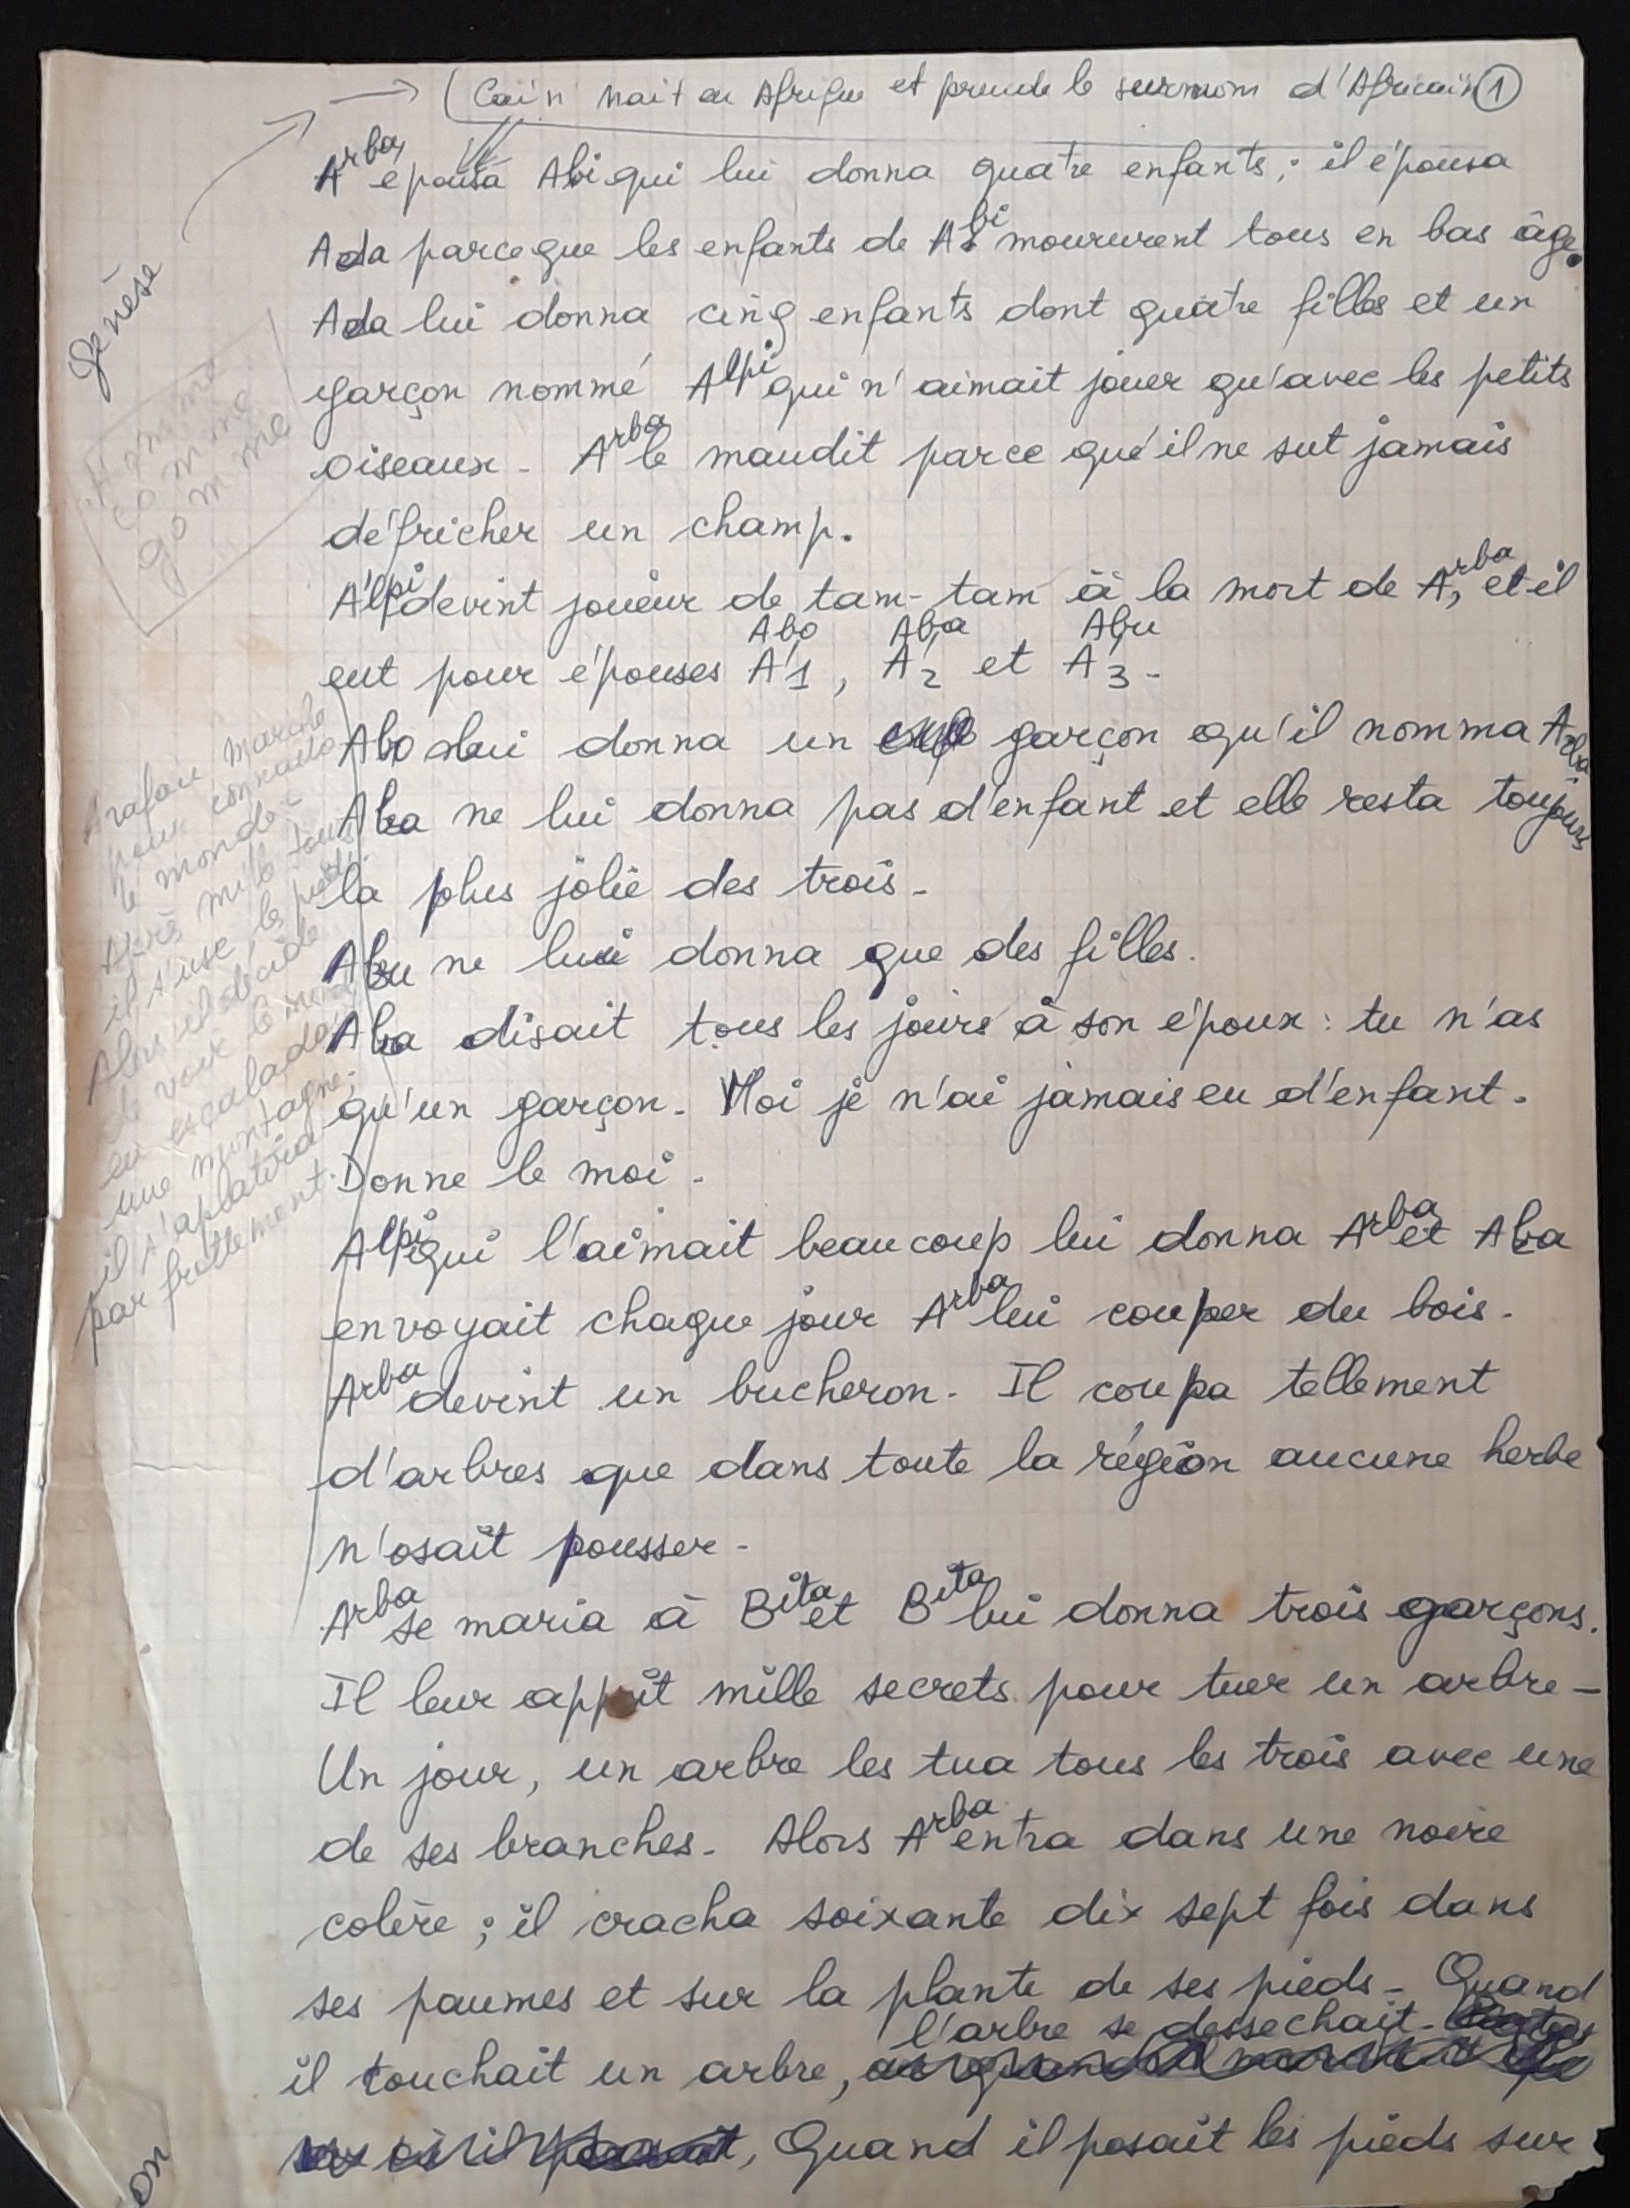 Caïn nait en Afrique et prende le surnom d'Africain 1
Arba épousa Abi qui lui donna quatre enfants ; il épousa
Ada parceque les enfants de Abi moururent tous en bas âge.
Ada lui donna cinq enfants dont quatre filles et un
garçon nommé Alpi qui n'aimait jouer qu'avec les petits
oiseaux - Arba le maudit parce qu'il ne sut jamais
défricher un champ.
Alpi devint joueur de tam-tam à la mort de Arba, et il
Abo Aba Abu
eut pour épouses A'1, A'2 et A'3 -
Abo lui donna un garçon qu'il nomma Arba
Aba ne lui donna pas d'enfant et elle resta toujours
la plus jolie des trois -
Abu ne lui donna que des filles.
Aba disait tous les jours à son époux : tu n'as
qu'un garçon - Moi je n'ai jamais eu d'enfant -
Donne le moi -
Alpi qui l'aimait beaucoup lui donna Arba et Aba
envoyait chaque jour Arba lui couper du bois -
Arba devint un bucheron - Il coupa tellement
d'arbres que dans toute la région aucune herbe
n'osait pousser -
Arba se maria à Bita et Bita lui donna trois garçons.
Il leur apprit mille secrets pour tuer un arbre -
Un jour, un arbre les tua tous les trois avec une
de ses branches - Alors Arba entra dans une noire
colère ; il cracha soixante dix sept fois dans
ses paumes et sur la plante de ses pieds - Quand
l'arbre se dessechait -
il touchait un arbre,
Quand il posait les pieds sur
Genèse
gomme
Arafou marche
pour connaitre
le monde -
Après mille tours
il s'use les pieds.
Alors il décide
de voir le monde
en escaladant
une montagne ;
il s'aplatira
par frottement.
on